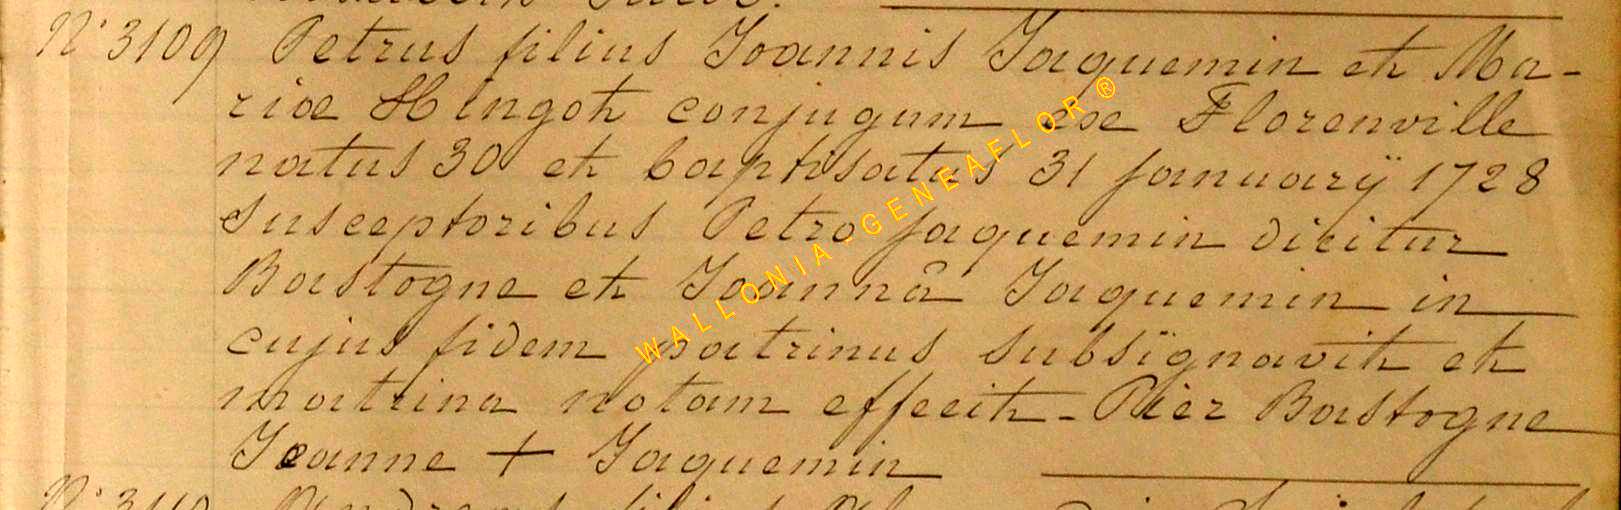 N° 3109 Petrus filius Joannis Jaquemin et Ma-
riæ Hingot conjugum ex Florenville
natus 30 et baptisatus 31 januarÿ 1728
susceptoribus Petro jaquemin dicitur
Bastogne et Joannâ Jaquemin in
cujus fidem patrinus subsignavit et
matrina notam effecit - Pier Bastogne
Jeanne + Jaquemin
N° 3110
WALLONIA-GENEAFLOR ®